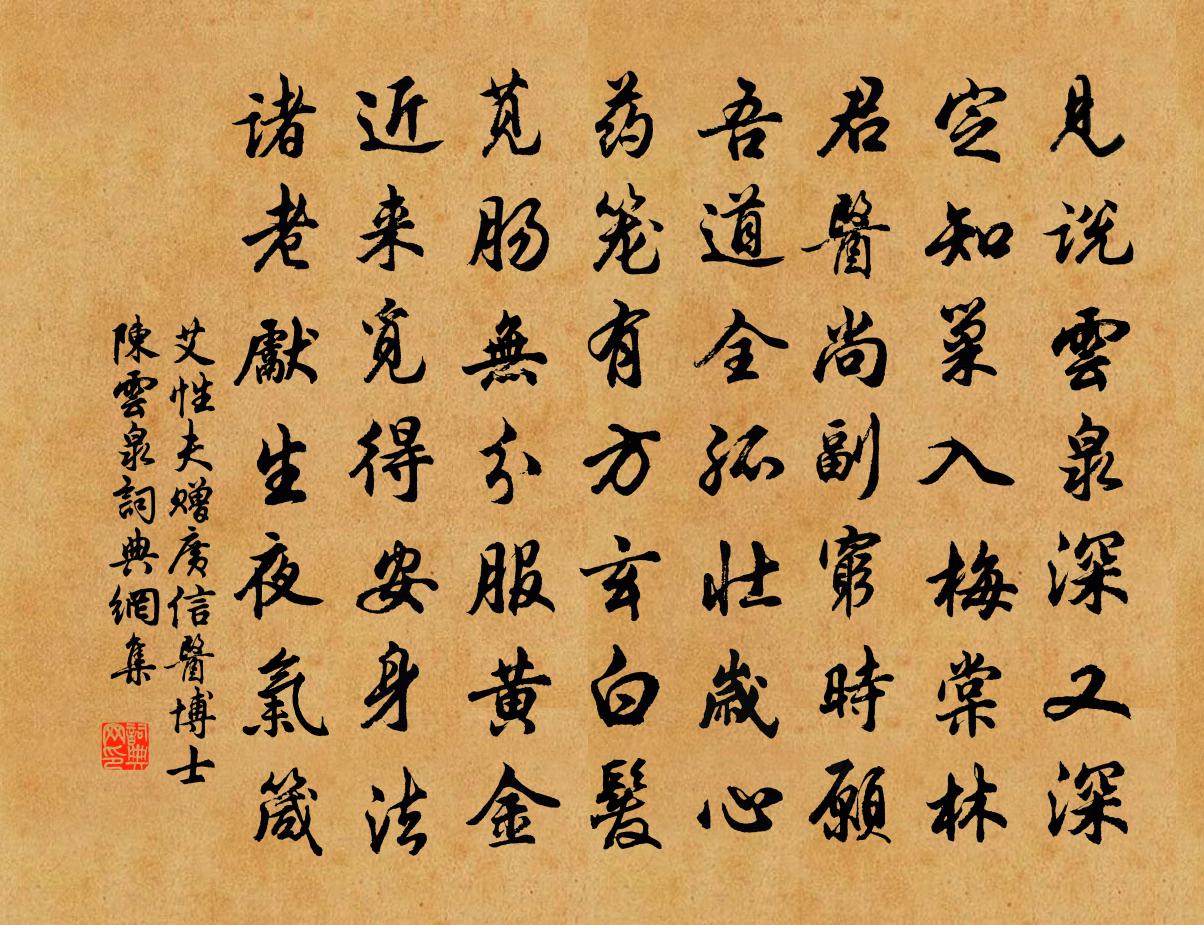 見说雲泉深又深
定知巢入梅棠林
君醫尚副窮時願
吾道全孤壯歲心
药笼有方玄白髮
莧腸無分服黄金
近来覓得安身法
诸老獻生夜氣箴
艾性夫赠廣信醫博士
陳雲泉詞典網集
詞典网印